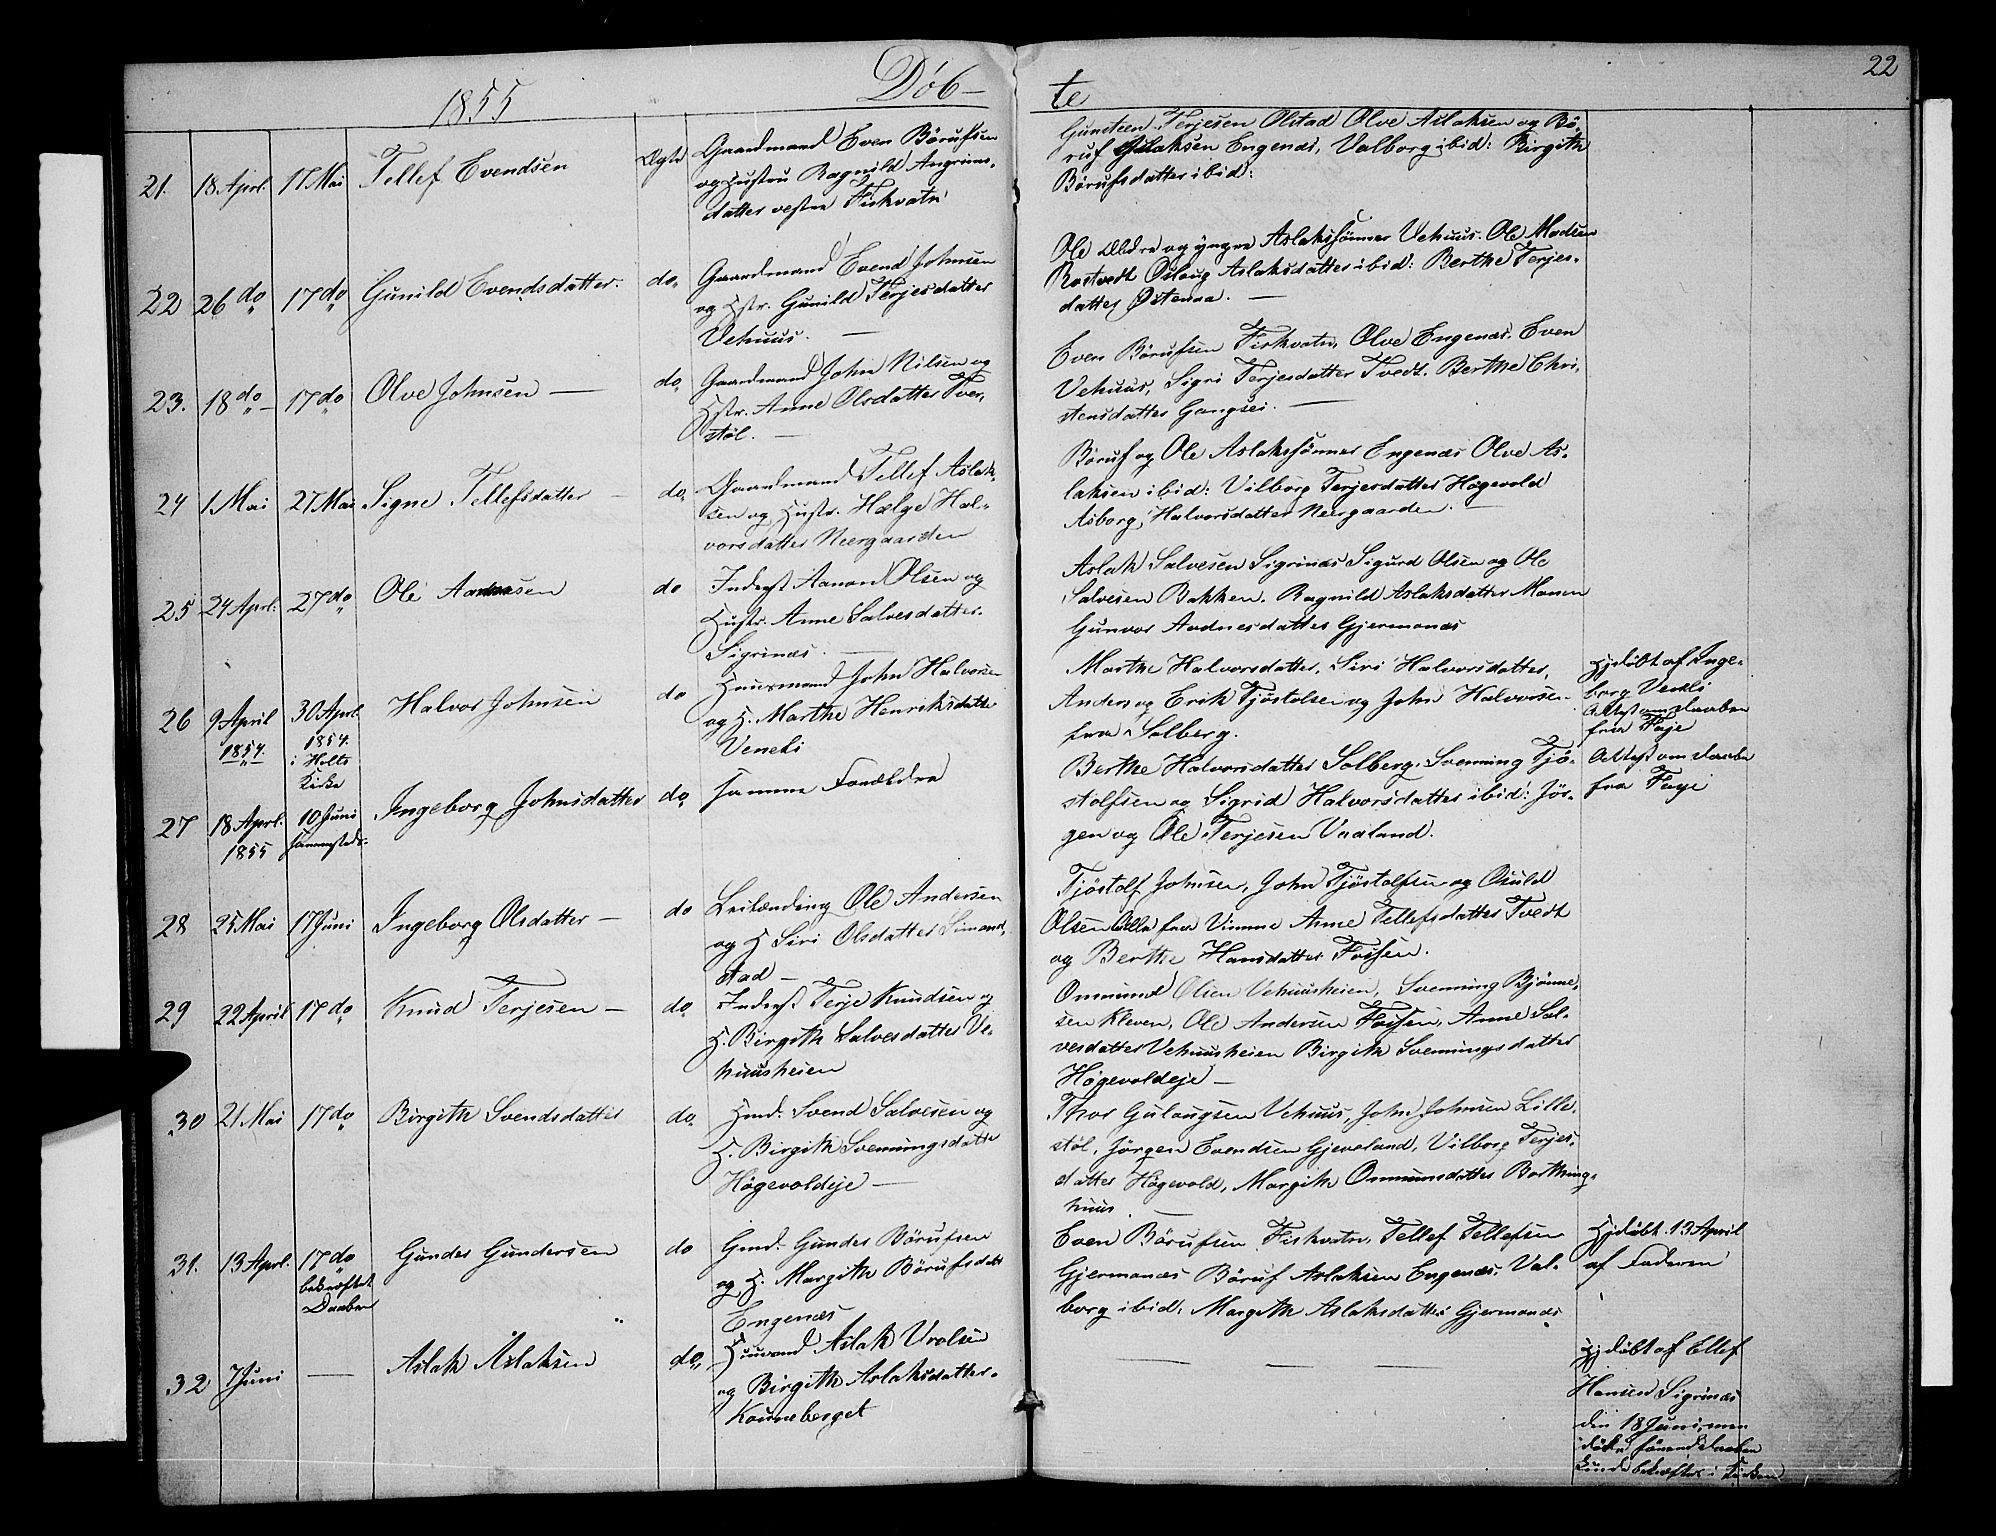 22
1855 Döb-
te
21. 18. Aprl. 17 Mai Tellef Evendsen Ægte Gaardmand Even Börufsen
og Hustru Ragnild Angrims-
datter vestre Fiskvatn
Gunsteen Terjesen Olstad Olve Aslaksen og Bö-
ruf Aslaksen Engenæs, Valborg ibid: Birgith
Börufsdatter ibid:
22 26 do 17 do Gunild Evendsdatter. do. Gaardmand Evend Johnsen
og Hstr. Gunild Terjesdatter
Vehuus. —
Ole Ældre og yngre Aslakssönner Vehuus. Ole Madsen
Rostvedt Oslaug Aslaksdatter ibid: Berthe Terjes-
datter Östenaa. —
23. 18 do — 17 do Olve Johnsen — do. Gaardmand John Nilsen og
Hstr. Anne Olsdatter Tver-
stöl. —
Even Börufsen Fiskvatn, Olve Engenæs. Even
Vehuus, Sigri Terjesdatter Tvedt. Berthe Chri-
stensdatter Gangsei. —
24 1 Mai 27 Mai Signe Tellefsdatter — do. Gaardmand Tellef Aslak-
sen og Hustr. Hælge Hal-
vorsdatter Neergaarden
Böruf og Ole Aslakssönner Engenæs Olve As-
laksen ibid: Vilborg Terjesdatter Högevold
Asborg Halvorsdatter Neergaarden. —
25 24 Aprl. 27 do Ole do Inderst Aanon Olsen og
Hustr. Anne Salvesdatter.
Sigrinæs. —
Aslak Salvesen Sigrinæs Sigurd Olsen og Ole
Salvesen Bakken. Ragnild Aslaksdatter Monen
Gunvor Audnesdatter Gjermonæs
26 9 April
1854 30 Aprl.
1854.
i Holts
Kirke Halvor Johnsen do Huusmand John Halvorsen
og H. Marthe Henriksdatter
Veneli
Marthe Halvorsdatter, Siri Halvorsdatter,
Anders og Erik Tjöstolsen og John Halvorsen
fra Solberg.
Hjdöbt af Inge-
borg Veneli
Attest om Daaben
fra Froje
27 18 Aprl.
1855 10 Juni
sammesteds. Ingeborg Johnsdatter do. samme Forældre
Berthe Halvorsdatter Solberg, Svenning Tjö-
stolfsen og Sigrid Halvorsdatter ibid: Jör-
gen og Ole Terjesen Vaaland.
Attest om Daaben
fra Froje
28 25 Mai 17 Juni Ingeborg Olsdatter — do Leilænding Ole Andersen
og H Siri Olsdatter Simond-
stad —
Tjöstolf Johnsen, John Tjöstolfsen og Osuld
Olsen Alle fra Vimme Anne Tellefsdatter Tvedt
og Berthe Hansdatter Fossen.
29 22 April 17 do Knud Terjesen — do. Inderst Terje Knudsen og
H. Birgith Salvesdatter Ve-
huusheien
Ommund Olsen Vehuusheien, Svenning Bjönne-
sen Kleven, Ole Andersen Fossen, Anne Sal-
vesdatter Vehuusheien Birgith Svenningsdatter
Högevoldeje —
30 21 Mai 17 do Birgith Svendsdatter do. Hmd. Svend Salvesen og
H. Birgith Svenningsdatter
Högevoldeje —
Thor Gulaugsen Vehuus, John Johnsen Lille-
stöl, Jörgen Evendsen Gjeveland, Vilborg Terjes-
datter Högevold, Margith Ommunsdatter
huus
31. 13 Aprl. 17 do
bekræftet
Daaben Gunder Gundersen do Gmd. Gunder Börufsen
og H. Margith Börufsdatter
Engenæs
Even Börufsen Fiskvatn, Tellef Tellefsen
Gjermonæs Böruf Aslaksen Engenæs. Val-
borg ibid, Margith Aslaksdatter Gjermonæs
Hjdöbt. 13 April
af Faderen
32 7 Juni — Aslak Aslaksen do. Huusmand Aslak
og Birgith Aslaksdatter.
Konneberget
— — —
Hjdöbt af Ellef
Hansen Sigrinæs
den 18 Juni, men
döde förend Daaben
kunde bekræftes i Kirken